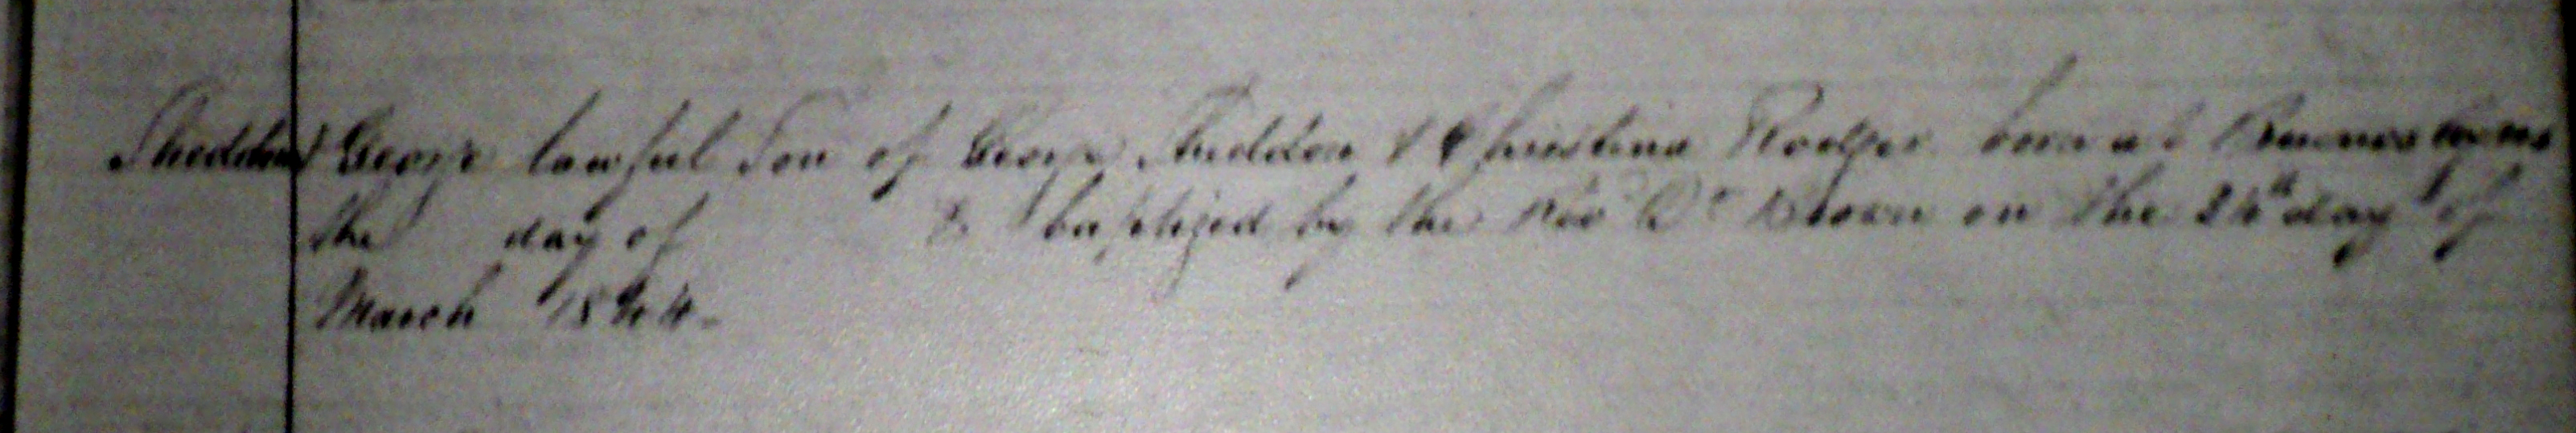 Shedden George lawful Son of George Shedden & Christina Rodger born at Buenos Ayres
the day of & baptized by the Revd Dr Brown on the 24th day of
March 1844.